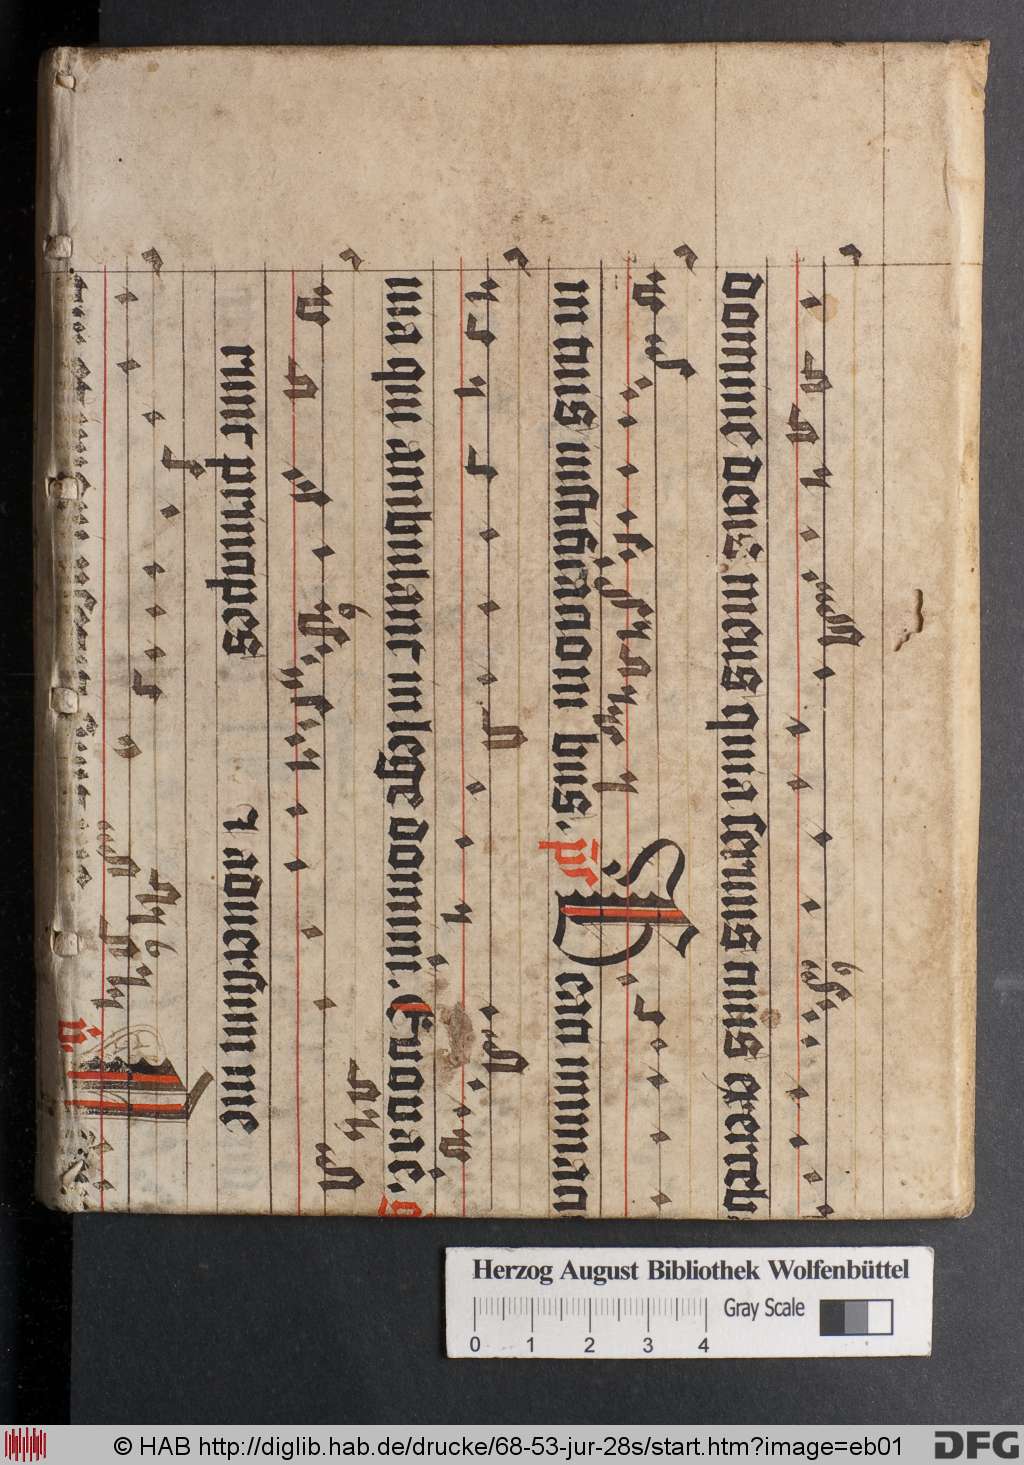 domine deus meus quia seruus tuus exerceb
in tuis iustificacioni bus. ps Beati immac
uia qui ambulant in lege domini. Euouae. g
runt principes ⁊ aduersum me
v.
Herzog August Bibliothek Wolfenbüttel
Gray Scale
0 1 2 3 4
© HAB http://diglib.hab.de/drucke/68-53-jur-28s/start.htm?image=eb01
DFG